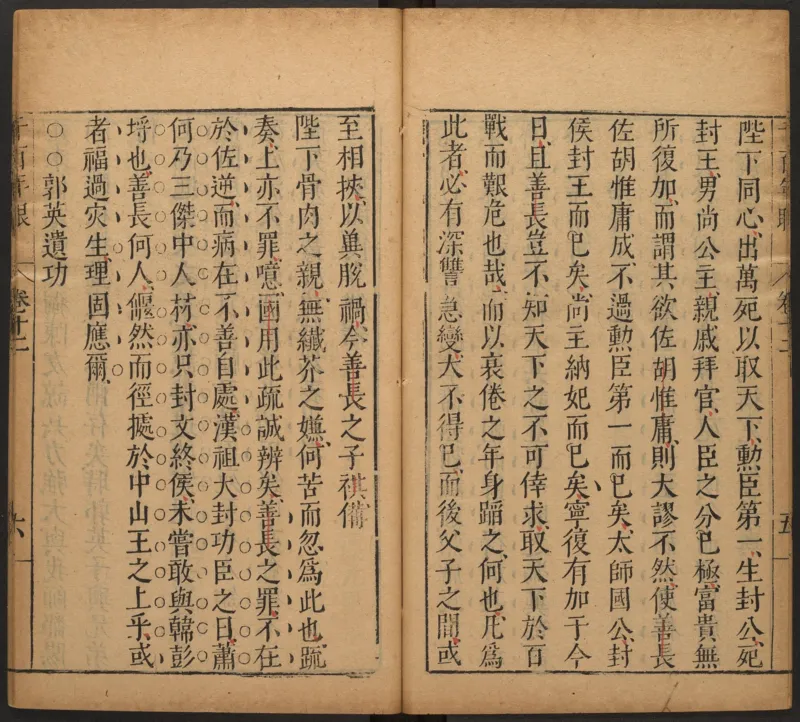 陛下同心出萬死以取天下勲臣第一生封公死
封王男尚公主親戚拜官人臣之分已極富貴無
所復加而謂其欲佐胡惟庸則大謬不然使善長
佐胡惟庸成不過勲臣第一而已矣太師國公封
侯封王而已矣尚主納妃而已矣寧復有加于今
日且善長豈不知天下之不可倖求取天下於百
戰而艱危也哉而以衰倦之年身蹈之何也凡爲
此者必有深讐急變大不得已而後父子之間或
至相挾以兾脫禍今善長之子祺備
陛下骨肉之親無纖芥之嫌何苦而忽爲此也䟽
奏上亦不罪噫國用此疏誠辨矣善長之罪不在
於佐逆而病在不善自處漢祖大封功臣之日蕭
何乃三傑中人材亦只封文終侯未嘗敢與韓彭
埒也善長何人偃然而徑據於中山王之上乎或
者福過灾生理固應爾
○○郭英遺功
卷十二
六